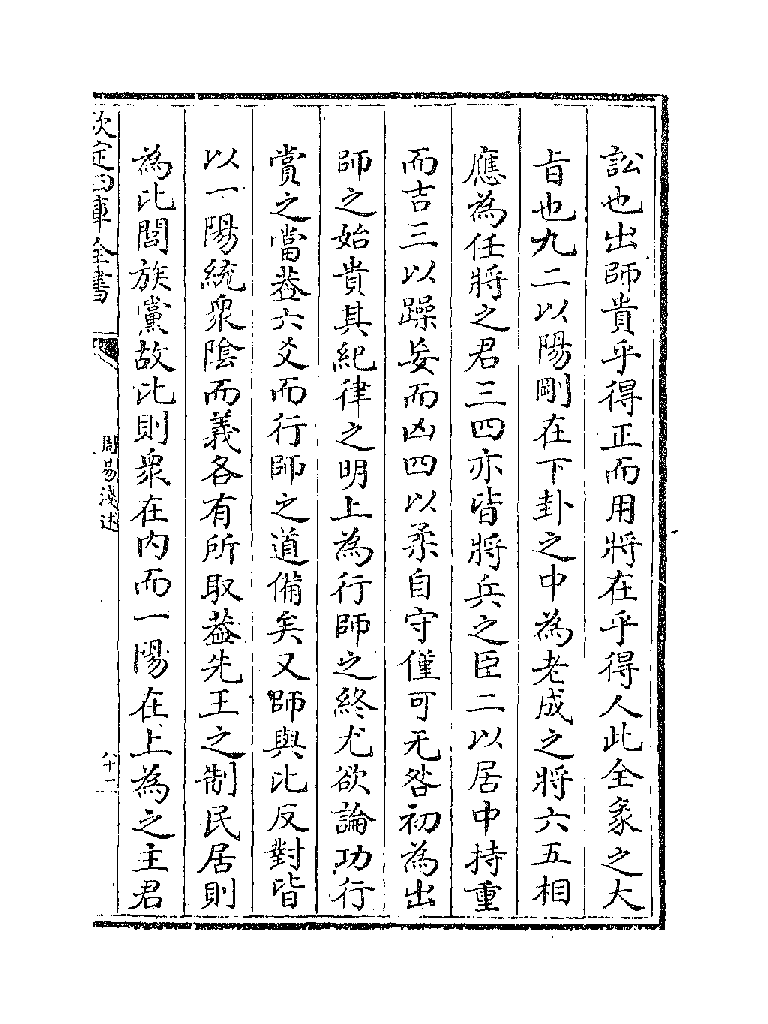 訟也出師貴乎得正而用將在乎得人此全彖之大
㫖也九二以陽剛在下卦之中為老成之將六五相
應為任將之君三四亦皆將兵之臣二以居中持重
而吉三以躁妄而凶四以柔自守僅可无咎初為出
師之始貴其紀律之明上為行師之終尤欲論功行
賞之當葢六爻而行師之道備矣又師與比反對皆
以一陽統衆陰而義各有所取葢先王之制民居則
為比閭族黨故比則衆在内而一陽在上為之主君
欽定四庫全書
周易淺述
八十二